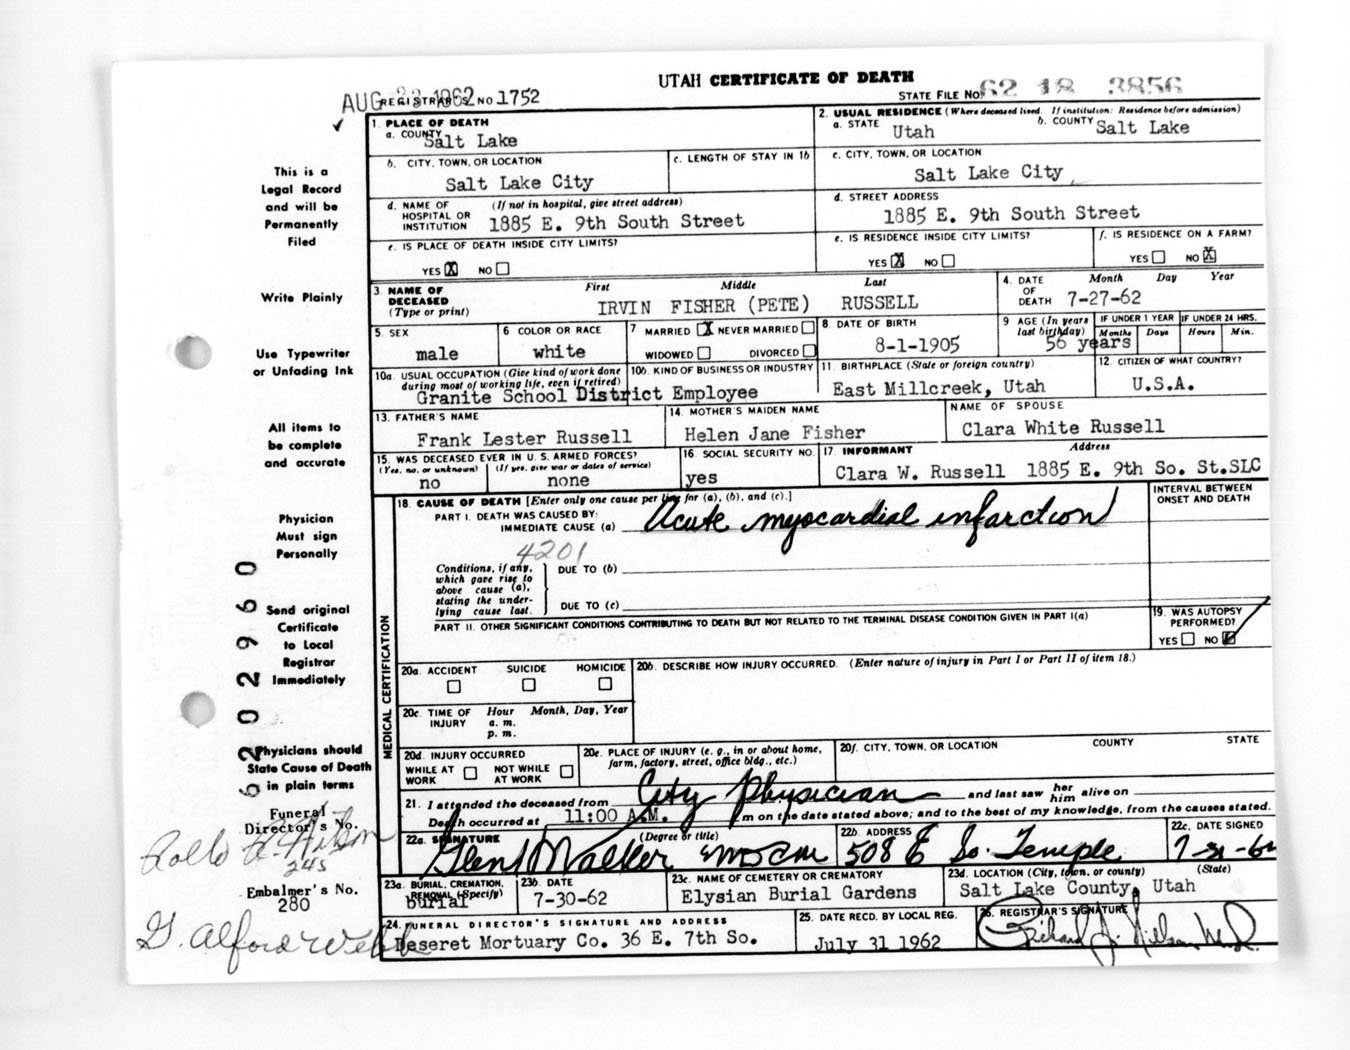 UTAH CERTIFICATE OF DEATH
AUG 23 1962 REGISTRAR'S NO 1752
STATE FILE NO. 62 18 3856
1. PLACE OF DEATH
a. COUNTY Salt Lake
2. USUAL RESIDENCE (Where deceased lived. If institution: Residence before admission)
a. STATE Utah b. COUNTY Salt Lake
b. CITY, TOWN, OR LOCATION Salt Lake City
c. LENGTH OF STAY IN 1b
c. CITY, TOWN, OR LOCATION Salt Lake City
d. NAME OF HOSPITAL OR INSTITUTION (If not in hospital, give street address) 1885 E. 9th South Street
d. STREET ADDRESS 1885 E. 9th South Street
e. IS PLACE OF DEATH INSIDE CITY LIMITS?
YES X NO
e. IS RESIDENCE INSIDE CITY LIMITS?
YES X NO
f. IS RESIDENCE ON A FARM?
YES NO X
3. NAME OF DECEASED (Type or print)
First Middle Last
IRVIN FISHER (PETE) RUSSELL
4. DATE OF DEATH Month Day Year
7-27-62
5. SEX male
6 COLOR OR RACE white
7 MARRIED X NEVER MARRIED
WIDOWED DIVORCED
8. DATE OF BIRTH 8-1-1905
9 AGE (In years last birthday) 56 years
IF UNDER 1 YEAR Months Days
IF UNDER 24 HRS. Hours Min.
10a. USUAL OCCUPATION (Give kind of work done during most of working life, even if retired)
10b. KIND OF BUSINESS OR INDUSTRY
Granite School District Employee
11. BIRTHPLACE (State or foreign country)
East Millcreek, Utah
12. CITIZEN OF WHAT COUNTRY?
U.S.A.
13. FATHER'S NAME
Frank Lester Russell
14. MOTHER'S MAIDEN NAME
Helen Jane Fisher
NAME OF SPOUSE
Clara White Russell
15. WAS DECEASED EVER IN U.S. ARMED FORCES?
(Yes, no, or unknown) (If yes, give war or dates of service)
no none
16. SOCIAL SECURITY NO.
yes
17. INFORMANT Address
Clara W. Russell 1885 E. 9th So. St.SLC
MEDICAL CERTIFICATION
18. CAUSE OF DEATH [Enter only one cause per line for (a), (b), and (c).]
INTERVAL BETWEEN ONSET AND DEATH
PART I. DEATH WAS CAUSED BY:
IMMEDIATE CAUSE (a) Acute myocardial infarction
4201
Conditions, if any, which gave rise to above cause (a), stating the underlying cause last.
DUE TO (b)
DUE TO (c)
PART II. OTHER SIGNIFICANT CONDITIONS CONTRIBUTING TO DEATH BUT NOT RELATED TO THE TERMINAL DISEASE CONDITION GIVEN IN PART I(a)
19. WAS AUTOPSY PERFORMED?
YES NO
20a. ACCIDENT SUICIDE HOMICIDE
20b. DESCRIBE HOW INJURY OCCURRED. (Enter nature of injury in Part I or Part II of item 18.)
20c. TIME OF INJURY Hour Month, Day, Year
a. m.
p. m.
20d. INJURY OCCURRED
WHILE AT WORK NOT WHILE AT WORK
20e. PLACE OF INJURY (e. g., in or about home, farm, factory, street, office bldg., etc.)
20f. CITY, TOWN, OR LOCATION COUNTY STATE
21. I attended the deceased from City Physician and last saw her him alive on
Death occurred at 11:00 A.M. m on the date stated above; and to the best of my knowledge, from the causes stated.
22a. SIGNATURE (Degree or title)
Glen Walker MDCM
22b. ADDRESS
508 E So. Temple
22c. DATE SIGNED
7-31-62
23a. BURIAL, CREMATION, REMOVAL (Specify)
burial
23b. DATE
7-30-62
23c. NAME OF CEMETERY OR CREMATORY
Elysian Burial Gardens
23d. LOCATION (City, town, or county) (State)
Salt Lake County, Utah
24. FUNERAL DIRECTOR'S SIGNATURE AND ADDRESS
Deseret Mortuary Co. 36 E. 7th So.
25. DATE RECD. BY LOCAL REG.
July 31 1962
26. REGISTRAR'S SIGNATURE
This is a
Legal Record
and will be
Permanently
Filed
Write Plainly
Use Typewriter
or Unfading Ink
All items to
be complete
and accurate
Physician
Must sign
Personally
Send original
Certificate
to Local
Registrar
Immediately
Physicians should
State Cause of Death
in plain terms
6202960
Funeral
Director's No.
245
Embalmer's No.
280
G. Alford Webb